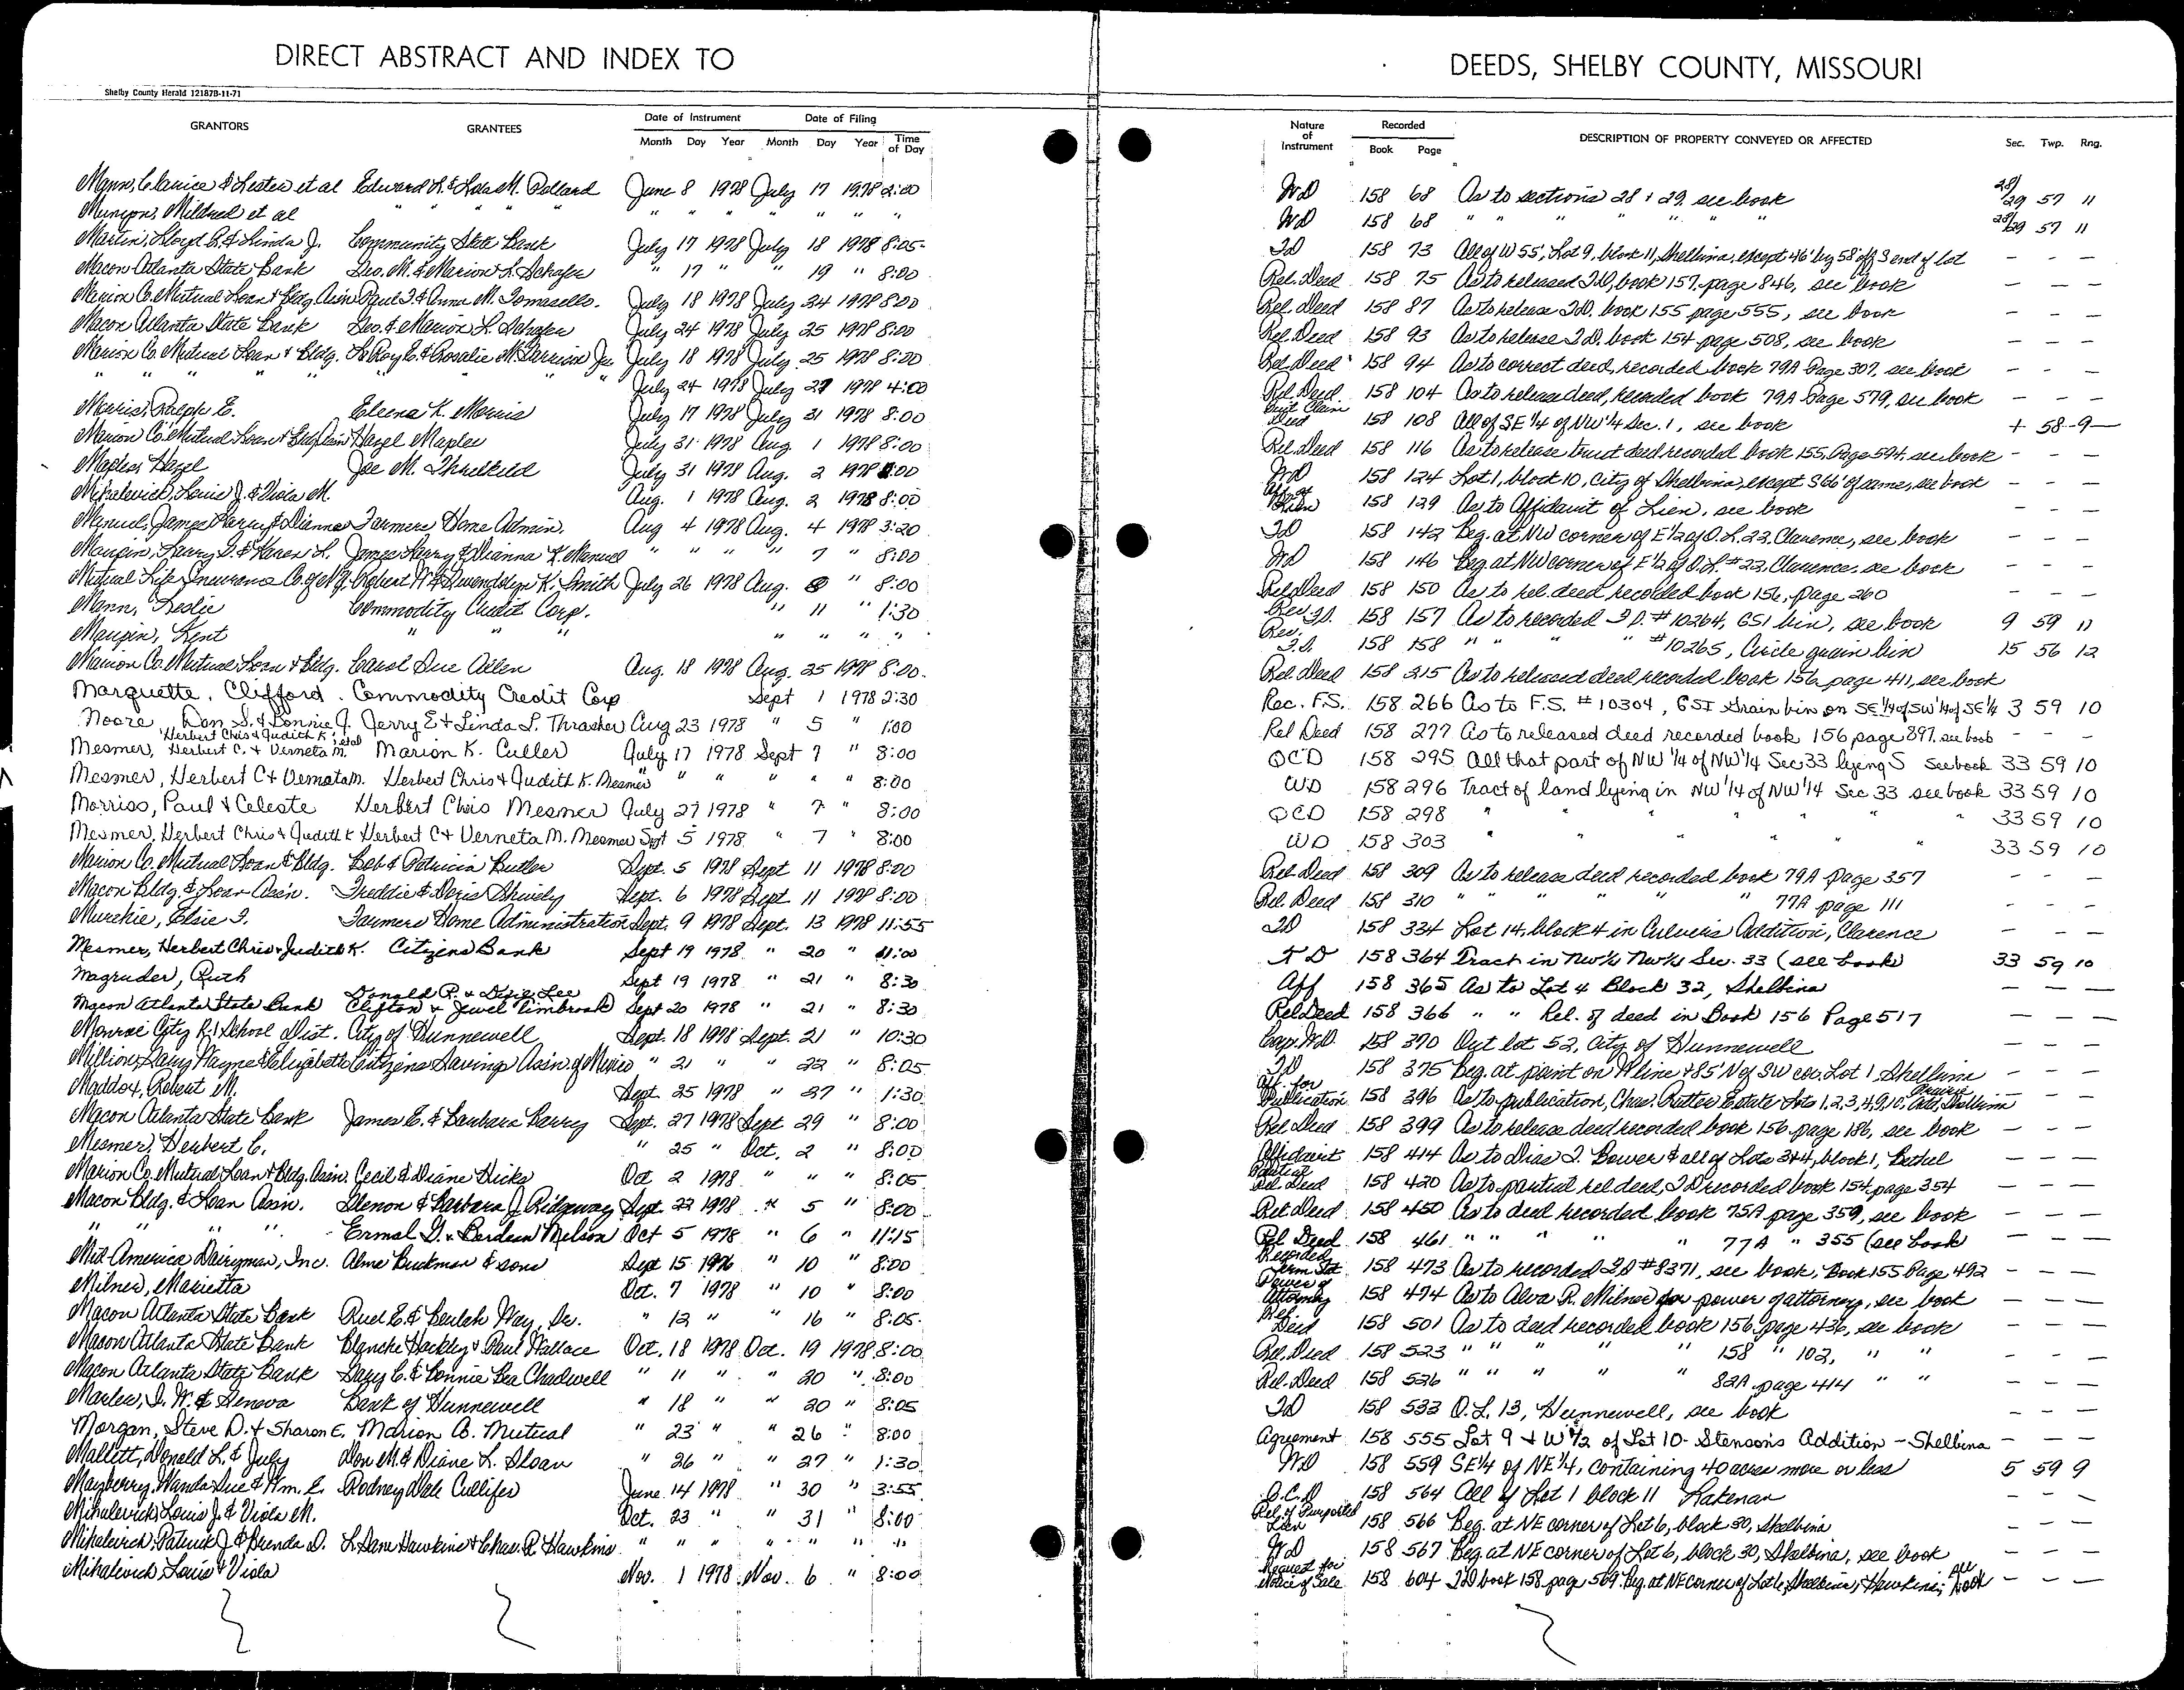 DIRECT ABSTRACT AND INDEX TO
Shelby County Herald 121878-11-71
GRANTORS GRANTEES Date of Instrument Date of Filing
Month Day Year Month Day Year Time of Day
Mann, Clarice & Lester et al Edward L. & Lola M. Pollard June 8 1978 July 17 1978 2:00
Munyon, Mildred et al " " " " " " " " " " "
Martin, Lloyd R. & Linda J. Community State Bank July 17 1978 July 18 1978 8:05
Macon Atlanta State Bank Geo. M. & Marion L. Schafer " 17 " " 19 " 8:00
Marion Co. Mutual Loan & Bldg. Assn Paul J. & Anna M. Tomasello. July 18 1978 July 24 1978 8:00
Macon Atlanta State Bank Geo. & Marion L. Schafer July 24 1978 July 25 1978 8:00
Marion Co. Mutual Loan & Bldg. LeRoy E. & Rosalie M. Garrison Jr. July 18 1978 July 25 1978 8:20
" " " " " " " July 24 1978 July 27 1978 4:00
Morris, Ralph E. Eleena K. Morris July 17 1978 July 31 1978 8:00
Marion Co. Mutual Loan & Bldg Assn Hazel Maples July 31 1978 Aug. 1 1978 8:00
Maples Hazel Joe M. Threlkeld July 31 1978 Aug. 2 1978 8:00
Mihalevich, Louis J. & Viola M. Aug. 1 1978 Aug. 2 1978 8:00
Manuel, James Larry & Dianna Farmers Home Admin. Aug 4 1978 Aug. 4 1978 3:20
Maupin, Larry D. & Karen L. James Larry & Dianna K. Manuel " " " " 7 " 8:00
Mutual Life Insurance Co. of N.Y. Robert W. & Gwendolyn K. Smith July 26 1978 Aug. 8 " 8:00
Mann, Leslie Commodity Credit Corp. " 11 " 1:30
Maupin, Kent " " " " " " "
Marion Co. Mutual Loan & Bldg. Carol Sue Allen Aug. 18 1978 Aug. 25 1978 8:00
Marquette, Clifford. Commodity Credit Corp Sept 1 1978 2:30
Moore, Don S. & Bonnie J. Jerry E + Linda L. Thrasher Aug 23 1978 " 5 " 1:00
Herbert Chris & Judith K. etal
Mesmer, Herbert C. + Verneta M. Marion K. Culler July 17 1978 Sept 7 " 8:00
Mesmer, Herbert C + Verneta M. Herbert Chris + Judith K. Mesmer " " " " " 8:00
Morriss, Paul & Celeste Herbert Chris Mesmer July 27 1978 " 7 " 8:00
Mesmer, Herbert Chris + Judith K Herbert C + Verneta M. Mesmer Sept 5 1978 " 7 " 8:00
Marion Co. Mutual Loan & Bldg. Bob & Patricia Butler Sept. 5 1978 Sept 11 1978 8:00
Macon Bldg. & Loan Ass'n. Freddie & Doris Shively Sept. 6 1978 Sept 11 1978 8:00
Murchie, Elsie I. Farmers Home Administration Sept. 9 1978 Sept. 13 1978 11:55
Mesmer, Herbert Chris + Judith K. Citizens Bank Sept 19 1978 " 20 " 11:00
Magruder, Ruth Sept 19 1978 " 21 " 8:30
Donald R. & Dixie Lee
Macon Atlanta State Bank Clifton & Jewel Timbrook Sept 20 1978 " 21 " 8:30
Monroe City R-1 School Dist. City of Hunnewell Sept. 18 1978 Sept. 21 " 10:30
Million, Larry Wayne & Elizabeth Citizens Savings Assn. of Mexico " 21 " " 22 " 8:05
Maddox, Robert M. Sept. 25 1978 " 27 " 1:30
Macon Atlanta State Bank James E. & Barbara Barry Sept. 27 1978 Sept 29 " 8:00
Mesmer, Herbert C. " 25 " Oct. 2 " 8:00
Marion Co. Mutual Loan & Bldg. Assn. Cecil & Diane Hicks Oct 2 1978 " " " 8:05
Macon Bldg. & Loan Assn. Glenon & Barbara J. Ridgeway Sept. 22 1978 " 5 " 8:00
" " " " Ermal D. & Berdean Nelson Oct 5 1978 " 6 " 11:15
Mid-America Dairyman, Inc. Alme Buckman & sons Sept 15 1976 " 10 " 8:00
Milner, Marietta Oct. 7 1978 " 10 " 8:00
Macon Atlanta State Bank Ruel E. & Beulah Way, Sr. " 12 " " 16 " 8:05
Macon Atlanta State Bank Blanche Hackley & Paul Wallace Oct. 18 1978 Oct. 19 1978 8:00
Macon Atlanta State Bank Gary C. & Connie Bea Chadwell " 11 " " 20 " 8:00
Marler, I. W. & Geneva Bank of Hunnewell " 18 " " 20 " 8:05
Morgan, Steve D. & Sharon E. Marion Co. Mutual " 23 " " 26 " 8:00
Mallett, Donald L. & July Don M. & Diane L. Sloan " 26 " " 27 " 1:30
Mayberry, Wanda Sue & Wm. E. Rodney Dale Cullifer June 14 1978 " 30 " 3:55
Mihalevich, Louis J. & Viola M. Oct. 23 " " 31 " 8:00
Mihalevich, Patrick J. & Brenda D. L. Dane Hawkins & Chas. R. Hawkins " " " " " " "
Mihalevich, Louis & Viola Nov. 1 1978 Nov. 6 " 8:00
DEEDS, SHELBY COUNTY, MISSOURI
Nature of Instrument Recorded Book Page DESCRIPTION OF PROPERTY CONVEYED OR AFFECTED Sec. Twp. Rng.
WD 158 68 As to sections 28 & 29, see book 28/29 57 11
WD 158 68 " " " " " " " 28/29 57 11
TD 158 73 All of W 55', Lot 9, block 11, Shelbina, except 46' by 58' off S end of lot - - -
Rel. Deed 158 75 As to released T.D., book 157, page 846, see book - - -
Rel. Deed 158 87 As to release T.D. book 155 page 555, see book - - -
Rel. Deed 158 93 As to release T.D. book 154 page 508, see book - - -
Rel. Deed 158 94 As to correct deed, recorded book 79A Page 307, see book - - -
Rel. Deed 158 104 As to release deed, recorded book 79A Page 579, see book - - -
Quit Claim Deed 158 108 All of SE 1/4 of NW 1/4 Sec. 1, see book + 58-9-
Rel. Deed 158 116 As to release trust deed recorded book 155, Page 594, see book - - -
WD 158 124 Lot 1, block 10, City of Shelbina, except S 66' of same, see book - - -
Aff. of Lien 158 129 As to Affidavit of Lien, see book - - -
TD 158 142 Beg. at NW corner of E 1/2 of O.L. 22, Clarence, see book - - -
WD 158 146 Beg at NW corner of E 1/2 of O.L. #22, Clarence, see book - - -
Rel Deed 158 150 As to rel. deed recorded book 156, page 260 - - -
Rec. F.S. 158 157 As to recorded F.S. #10264, GSI bin, see book 9 59 11
Rec. F.S. 158 158 " " " " #10265, Circle grain bin 15 56 12
Rel. Deed 158 215 As to released deed recorded book 156, page 411, see book
Rec. F.S. 158 266 As to F.S. #10304, GSI Grain bin on SE 1/4 of SW 1/4 of SE 1/4 3 59 10
Rel Deed 158 277 As to released deed recorded book 156 page 897. see book - - -
QCD 158 295 All that part of NW 1/4 of NW 1/4 Sec 33 lying S see book 33 59 10
WD 158 296 Tract of land lying in NW 1/4 of NW 1/4 Sec 33 see book 33 59 10
QCD 158 298 " " " " " " 33 59 10
WD 158 303 " " " " " 33 59 10
Rel. Deed 158 309 As to release deed recorded book 79A page 357 - - -
Rel. Deed 158 310 " " " " " 77A page 111 - - -
TD 158 334 Lot 14, block 4 in Culvers Addition, Clarence - - -
TD 158 364 Tract in NW 1/4 NW 1/4 Sec. 33 (see book) 33 59 10
Aff 158 365 As to Lot 4 Block 32, Shelbina - - -
Rel Deed 158 366 " " Rel. of deed in Book 156 Page 517 - - -
Corp. W.D. 158 370 Out lot 52, City of Hunnewell - - -
TD 158 375 Beg. at point on W line & 85' N of SW cor. Lot 1, Shelbina - - -
Aff. for Publication 158 396 As to publication, Chas. Rutter Estate Lots 1,2,3,4,9,10, Add, Shelbina - - -
Rel. Deed 158 399 As to release deed recorded book 156 page 186, see book - - -
Affidavit 158 414 As to Dias I. Bower & all of Lots 3&4, block 1, Bethel - - -
Partial Rel. Deed 158 420 As to partial rel. deed, TD recorded book 154, page 354 - - -
Rel Deed 158 450 As to deed recorded book 75A page 359, see book - - -
Rel Deed 158 461 " " " " " 77A " 355 (see book - - -
Recorded Term Stat. 158 473 As to recorded F.S #8371, see book, Book 155 Page 492 - - -
Power of Attorney 158 474 As to Alva R. Milner for power of attorney, see book - - -
Rel. Deed 158 501 As to deed recorded book 156, page 436, see book - - -
Rel. Deed 158 523 " " " " " 158 " 102, " " - - -
Rel. Deed 158 526 " " " " " 82A page 414 " " - - -
TD 158 533 O.L. 13, Hunnewell, see book - - -
Agreement 158 555 Lot 9 & W 1/2 of Lot 10- Stenson's Addition - Shelbina - - -
WD 158 559 SE 1/4 of NE 1/4, containing 40 acres more or less 5 59 9
Q.C.D 158 564 All of Lot 1 block 11 Lakenan - - -
Rel. of Purported Lien 158 566 Beg. at NE corner of Lot 6, block 30, Shelbina - - -
WD 158 567 Beg. at NE corner of Lot 6, block 30, Shelbina, see book - - -
Request for Notice of Sale 158 604 TD book 158 page 569. Beg. at NE corner of Lot 6, Shelbina, Hawkins; see book - - -